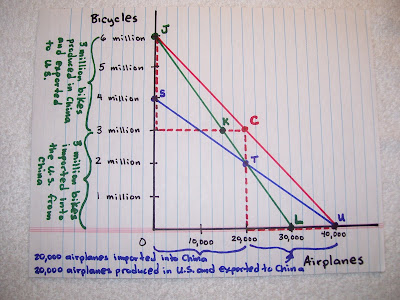 Bicycles
J
6 million
5 million
S
4 million
K
C
3 million
T
2 million
1 million
L
U
0
10,000
20,000
30,000
40,000
Airplanes
3 million bikes
produced in China
and exported
to U.S.
3 million bikes
imported into
the U.S. from
China
20,000 airplanes imported into China
20,000 airplanes produced in U.S. and exported to China